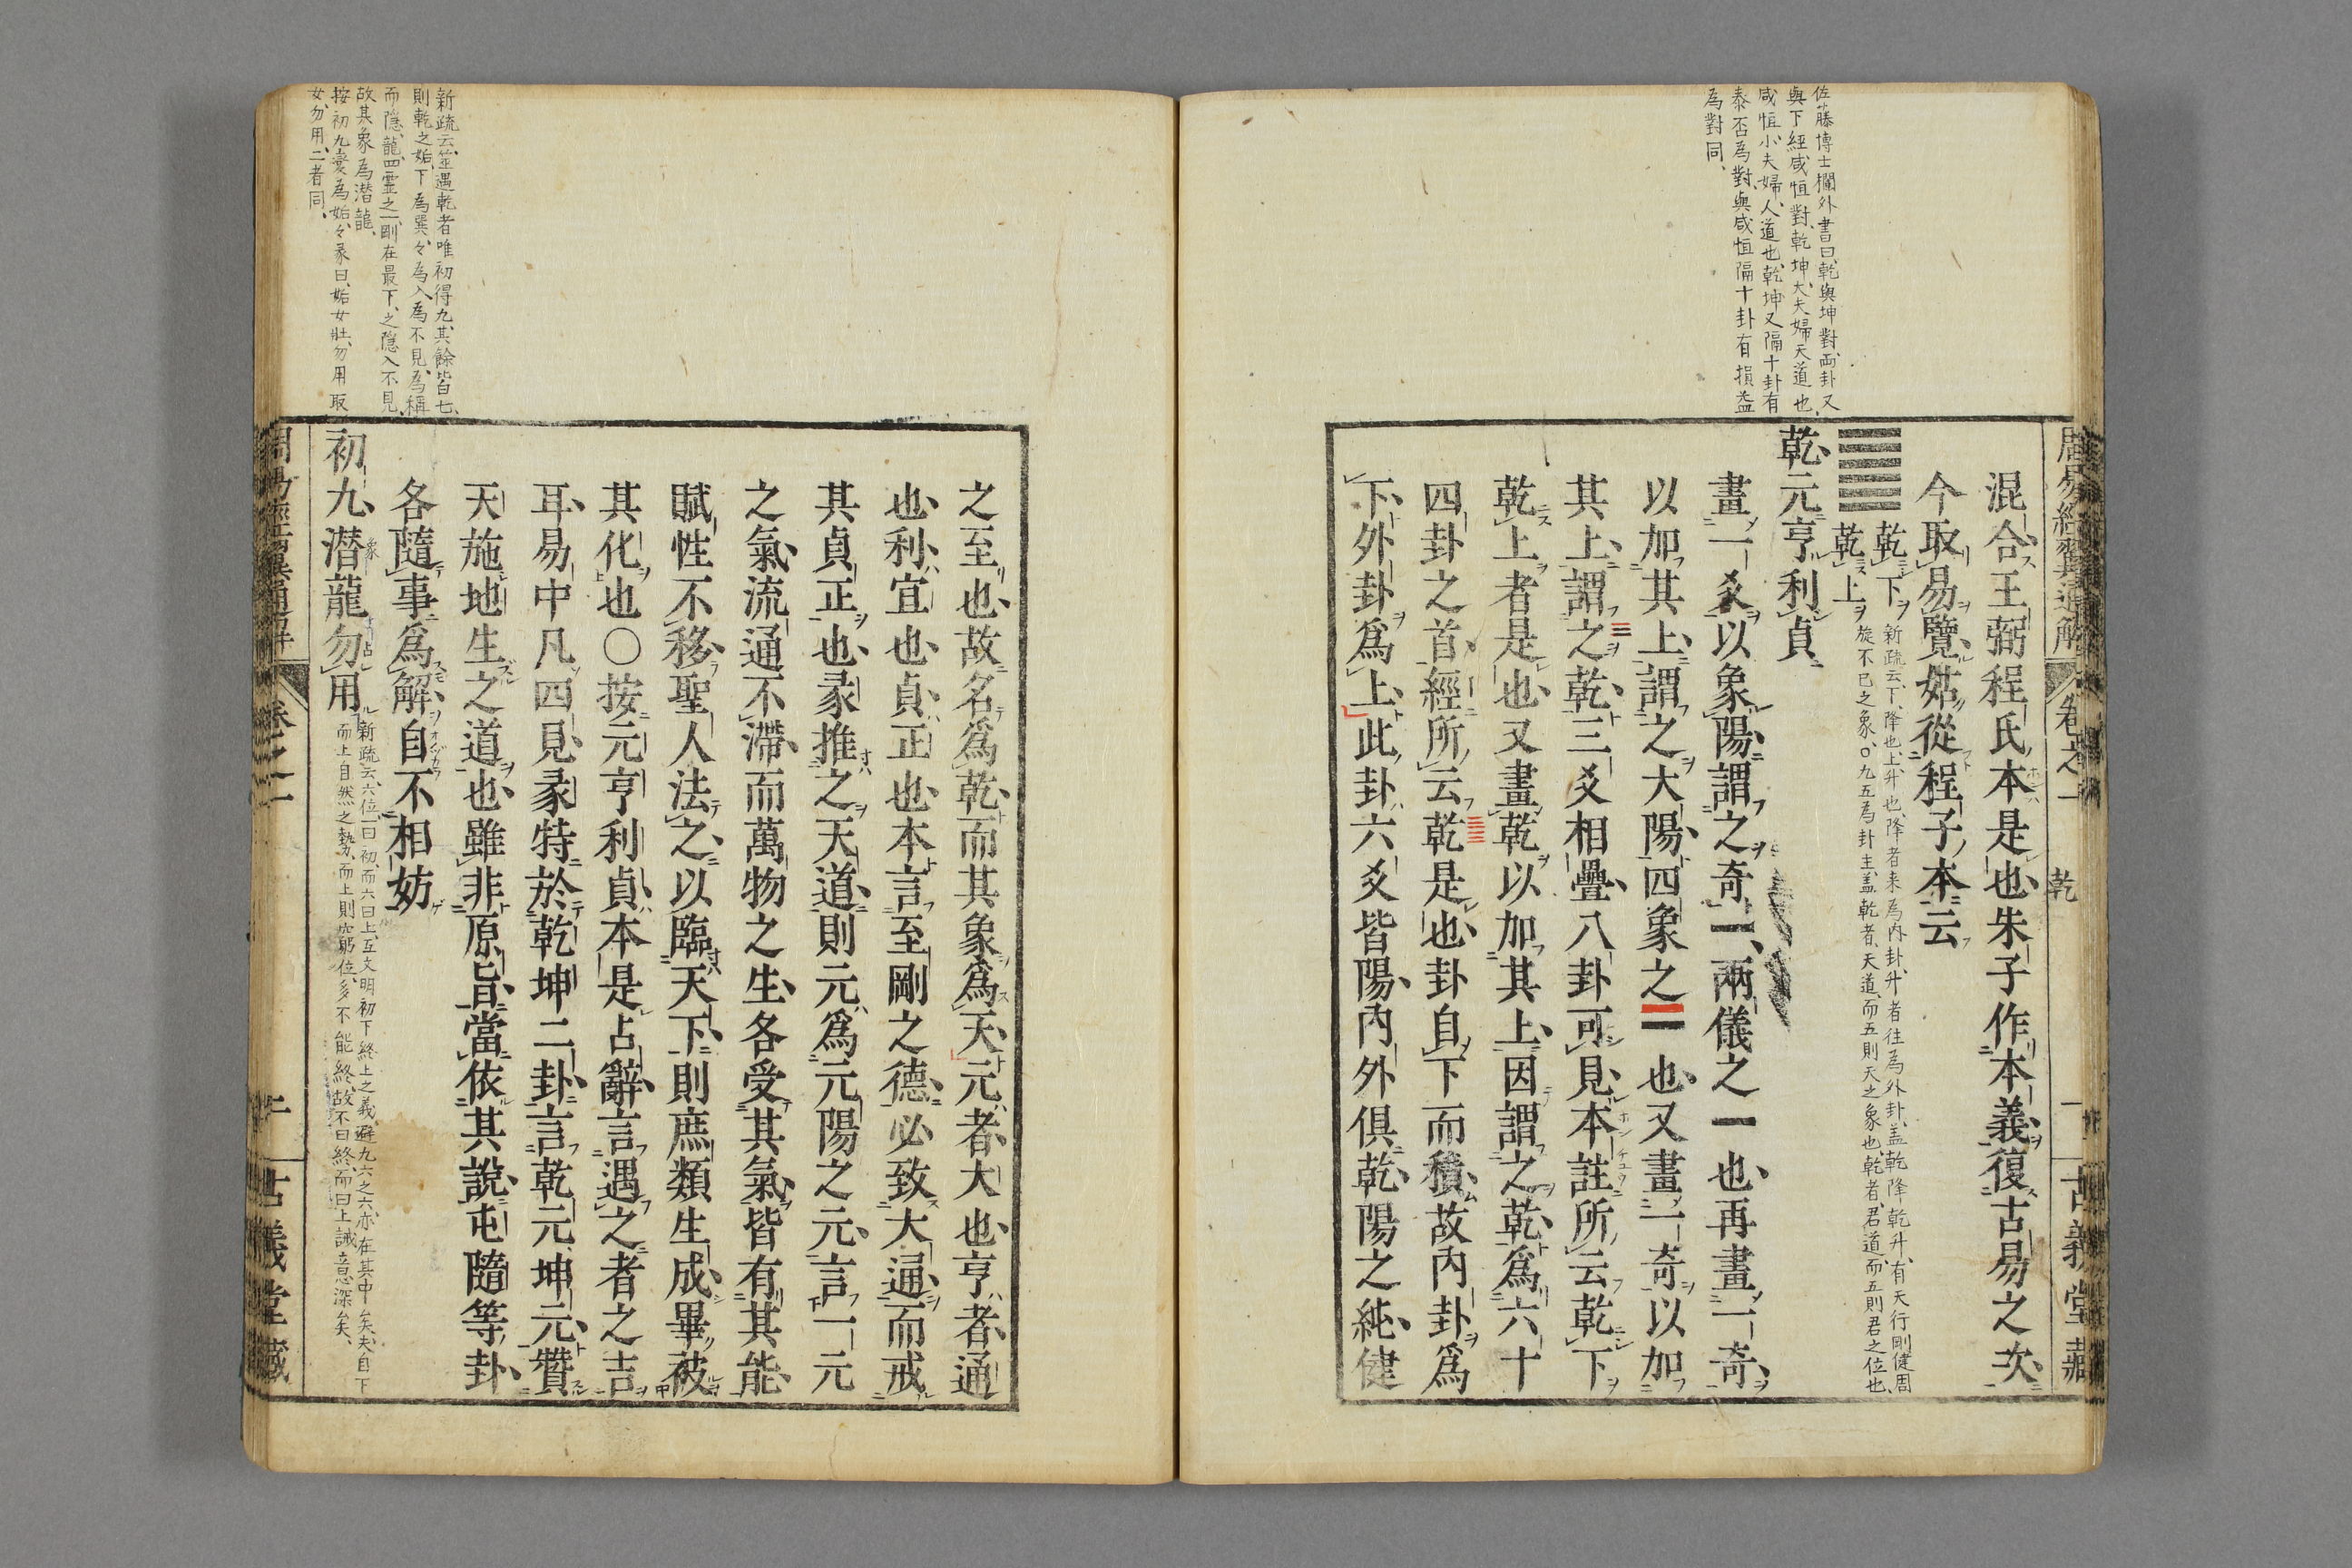 佐藤博士欄外書曰、乾與坤對、両卦又
與下經咸恒對、乾坤、大夫婦、天道也、
咸恒、小夫婦、人道也、乾坤又隔十卦有
泰否為對、與咸恒隔十卦有損益
為對同、
周易經翼通解
卷之一
乾
古義堂藏
混合王弼程氏本是也朱子作本義復古易之次
今取易覽姑從程子本云
乾下
乾上
新疏云、下、降也、上、升也、降者来為內卦、升者往為外卦、盖乾降乾升、有天行剛健周
旋不已之象、○九五為卦主、盖乾者、天道、而五則天之象也、乾者、君道、而五則君之位也、
乾元亨利貞
畫一爻以象陽謂之奇一、兩儀之一也再畫一奇
以加其上謂之大陽四象之⚌也又畫一奇以加
其上謂之乾三爻相疊八卦可見本註所云乾下
乾上者是也又畫乾以加其上因謂之乾爲六十
四卦之首經所云乾是也卦自下而積故內卦爲
下外卦爲上此卦六爻皆陽內外俱乾陽之純健
之至也故名爲乾而其象爲天元者大也亨者通
也利宜也貞正也本言至剛之德必致大通而戒
其貞正也彖推之天道則元爲元陽之元言一元
之氣流通不滯而萬物之生各受其氣皆有其能
賦性不移聖人法之以臨天下則庶類生成畢被
其化也○按元亨利貞本是占辭言遇之者之吉
耳易中凡四見彖特於乾坤二卦言乾元坤元贊
天施地生之道也雖非原旨當依其說屯隨等卦
各隨事爲解自不相妨
初九潜龍勿用
新疏云、六位一曰初、而六曰上、互文明初下終上之義、避九六之六、亦在其中矣、夫自下
而上自然之勢、而上則窮位、多不能終、故不曰終、而曰上誡意深矣、
新疏云、筮遇乾者唯初得九、其餘皆七、
則乾之姤、下為巽、々為入為不見、為稱
而隱、龍四靈之一、剛在最下、之隱入不見、
故其象為潜龍、
按初九変為姤、々彖曰、姤女壯、勿用取
女、勿用、二者同、
卷之一
古義堂藏